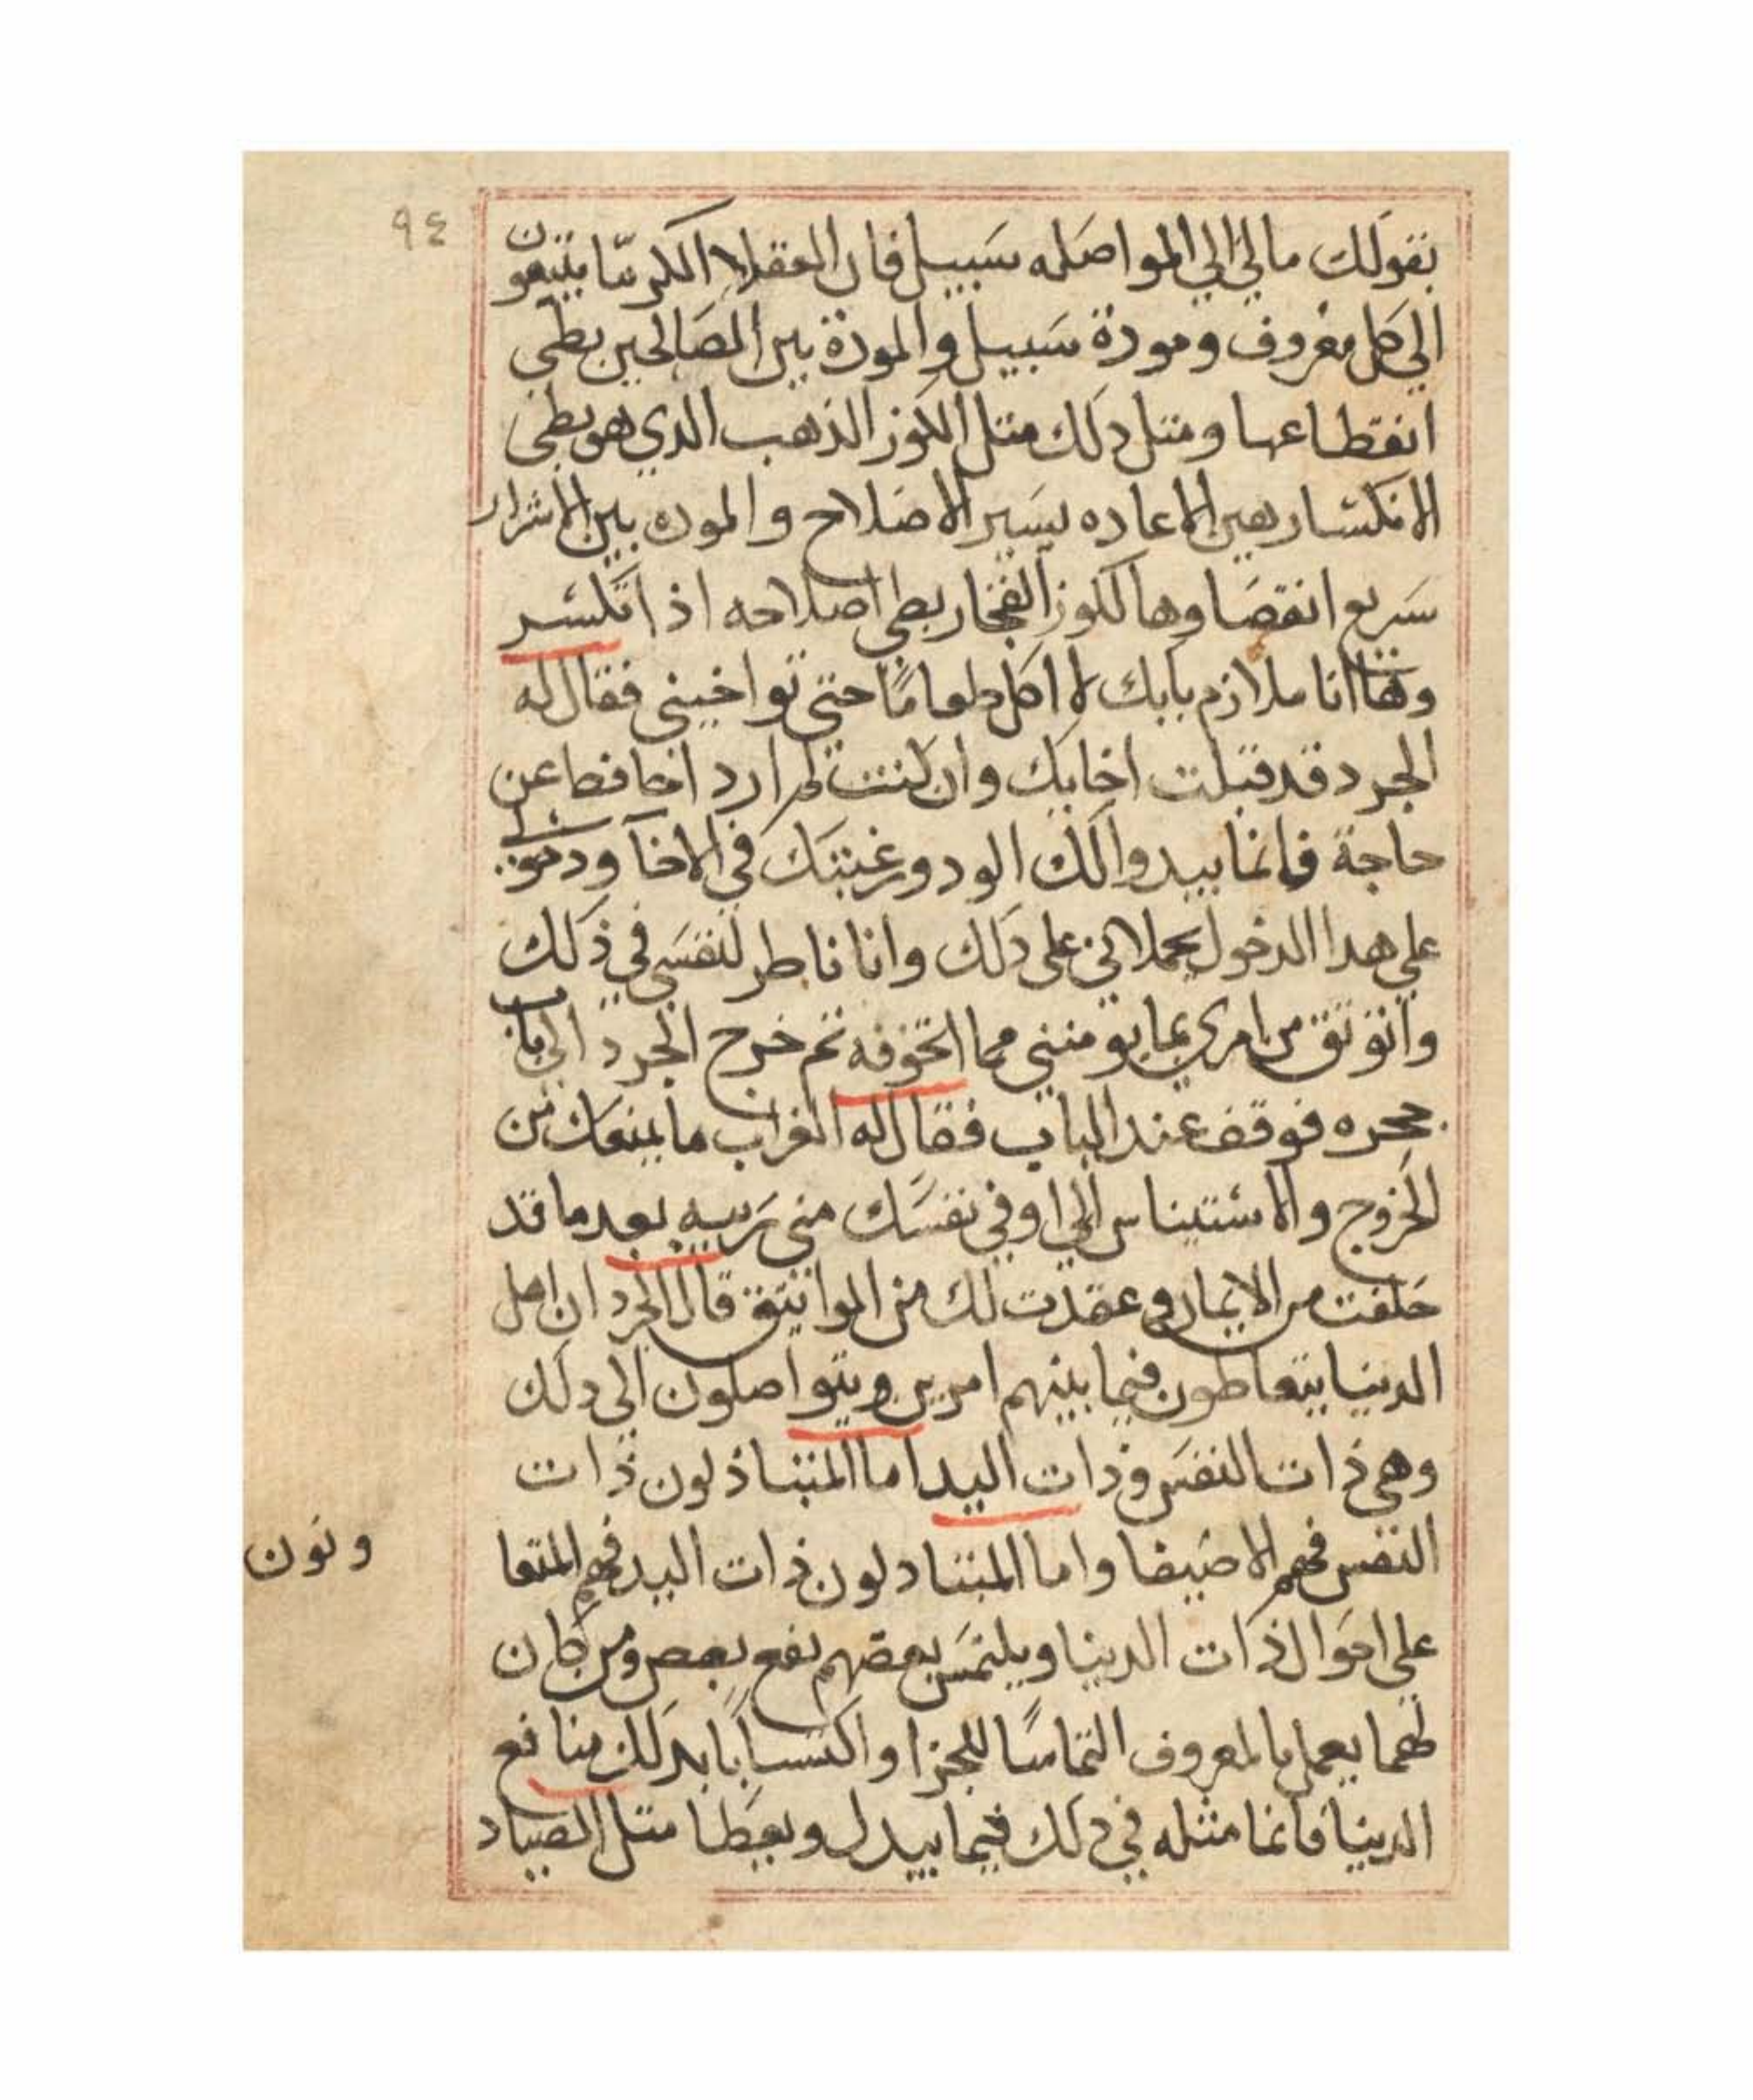 ٩٤
بقولك مالي الي المواصله سبيل فان العقلا الكرما يبتغون
الي كل معروف ومودة سبيل والمودة بين الصالحين بطي
انقطاعها ومثل دلك متل الكوز الذهب الدي هو بطي
الانكسار هين الاعاده يسير الاصلاح والموده بين الاشرار
سريع انقضاوها كالكوز الفخار بطي اصلاحه اذا انكسر
وها انا ملازم بابك لا اكل طعامًا حتى تواخيني فقال له
الجرد قد قبلت اخايك وان كنت لم ارد اخا قط عن
حاجة فانما يبدوا لك الود ورغبتك في الاخا ودخولي
علي هدا الدخول يحملاني علي دلك وانا ناطر لنفسي في ذلك
واتوثق من امري بما يومنني مما اتخوفه ثم خرج الجرد الي باب
جحره فوقف عند الباب فقال له الغراب ما يمنعك من
الخروج والاستيناس الي او في نفسك مني ريبه بعد ما قد
حلفت من الايمان وعقدت لك من المواثيق قال الجرد ان اهل
الدينا يتعاطون فيما بينهم امرين ويتواصلون الي دلك
وهي ذات النفس وذات اليد اما المتباذلون ذات
النفس فهم الاصفيا واما المتبادلون ذات اليد فهم المتعا
ونون
علي احوال ذات الدينا ويلتمس بعضهم نفع بعض ومن كان
لهما يعمل بالمعروف التماسًا للجزا واكتسابًا بدلك منافع
الدينا فانما مثله في دلك فيما يبدل ويعطا متل الصياد